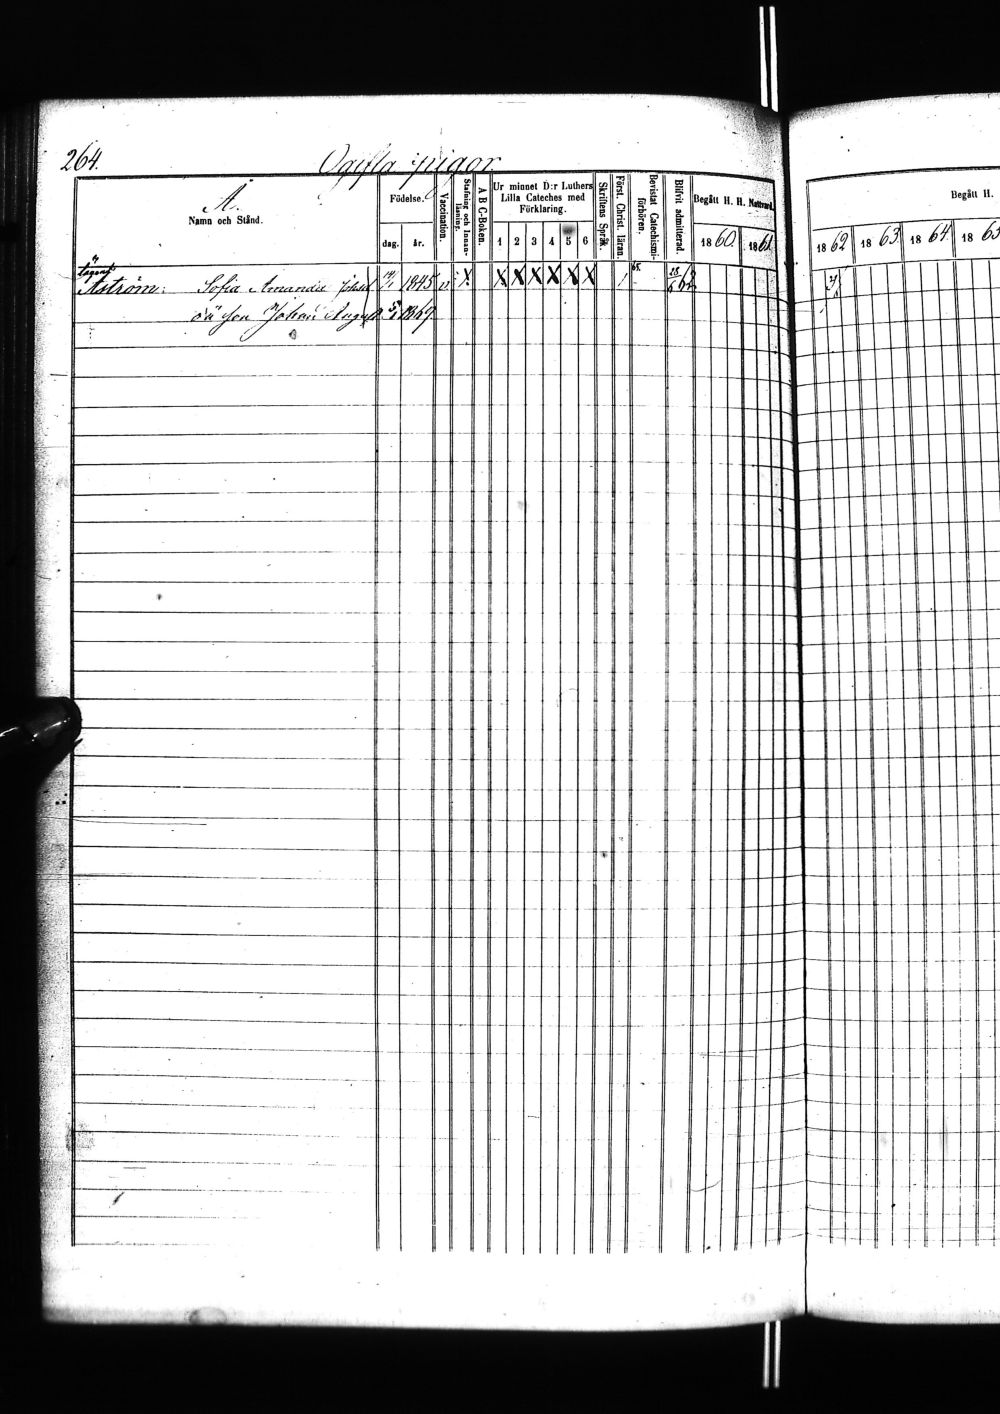 264.
Ogifta pigor
Å.
Namn och Stånd.
Födelse.
dag. år.
Vaccination.
Stafning och Innanläsning.
A B C-Boken.
Ur minnet D:r Luthers
Lilla Cateches med
Förklaring.
1 2 3 4 5 6
Skriftens Språk.
Först. Christ. läran.
Bevistat Catechismi-
förhören.
Blifvit admitterad.
Begått H. H. Nattvard.
1860. 1861.
Begått H.
1862 1863. 1864. 1863
Åström: Sofia Amanda 14/1 1845 v. X X X X X X X 1 65. 28/6 62
oä son Johan August 1869.